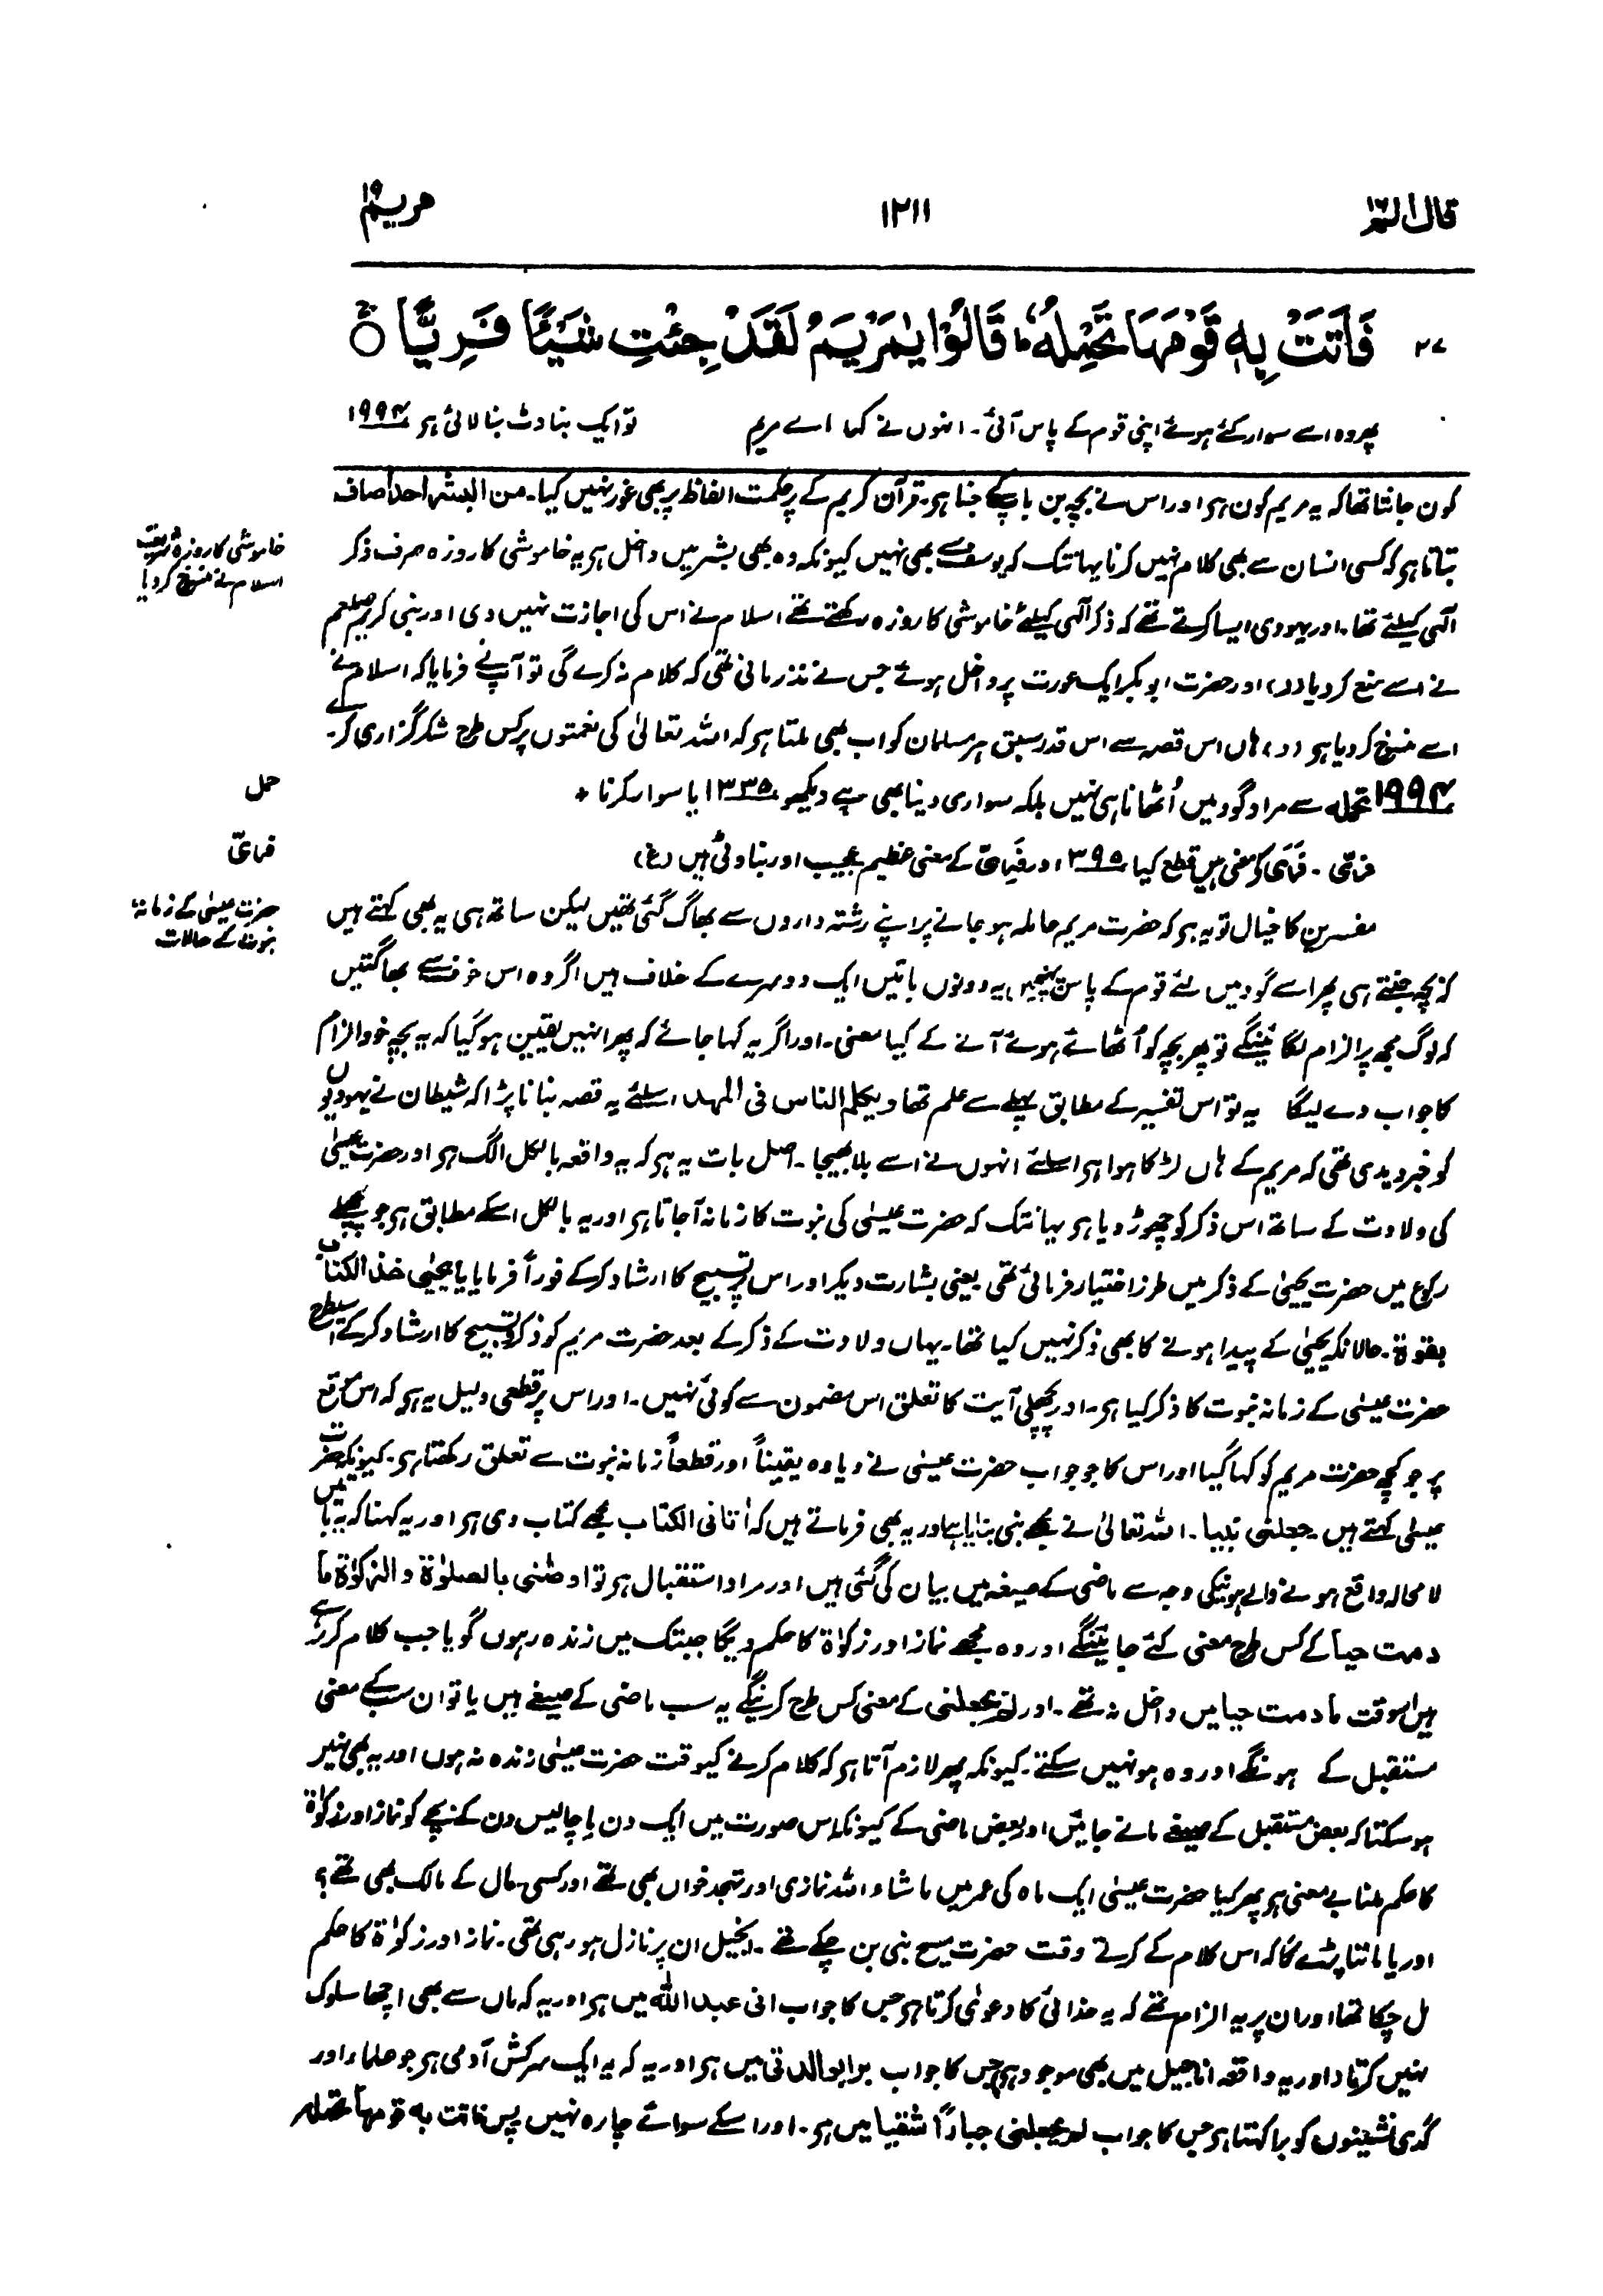 قال الم ١٦
١٢١١
مریم ١٩
٢٧ فَاَتَتْ بِهٖ قَوْمَهَا تَحْمِلُهٗ ؕ قَالُوْا یٰمَرْیَمُ لَقَدْ جِئْتِ شَیْـًٔا فَرِیًّا ○
پھر وہ اسے سوار کئے ہوئے اپنی قوم کے پاس آئی ۔ انہوں نے کہا اے مریم تو ایک بناوٹ بنا لائی ہو ١٩٩٤
کون جانتا تھا کہ یہ مریم کون ہو اور اس نے بچہ بن باپ کے جنا ہو۔ قرآن کریم کے پرحکمت الفاظ پر بھی غور نہیں کیا۔ من البشر احداً صاف
بتاتا ہو کہ کسی انسان سے بھی کلام نہیں کرنا یہانتک کہ یوسف سے بھی نہیں کیونکہ وہ بھی بشر میں داخل ہو یہ خاموشی کا روزہ صرف ذکر
خاموشی کا روزہ شریعت
اسلام نے منسوخ کر دیا
الٰہی کیلئے تھا۔ اور یہودی ایسا کرتے تھے کہ ذکر الٰہی کیلئے خاموشی کا روزہ رکھتے تھے اسلام نے اس کی اجازت نہیں دی اور نبی کریم صلعم
نے اسے منع کر دیا (د) اور حضرت ابوبکر ایک عورت پر داخل ہوئے جس نے نذر مانی تھی کہ کلام نہ کرے گی تو آپ نے فرمایا کہ اسلام نے
اسے منسوخ کر دیا ہو (د) ہاں اس قصہ سے اس قدر سبق ہر مسلمان کو اب بھی ملتا ہو کہ اللہ تعالیٰ کی نعمتوں پر کس طرح شکر گزاری کرے۔
١٩٩٤ تحملہ سے مراد گود میں اُٹھانا ہی نہیں بلکہ سواری دینا بھی ہے دیکھو ١٣٣٥ یا سوار کرنا +
حمل
فریّ ۔ فَرَی کو معنی ہیں قطع کیا ٣٩٥ اور فَرِیّ کے معنی عظیم عجیب اور بناوٹی ہیں (غ)
فریّ
مفسرین کا خیال تو یہ ہو کہ حضرت مریم حاملہ ہو جانے پر اپنے رشتہ داروں سے بھاگ گئی تھیں لیکن ساتھ ہی یہ بھی کہتے ہیں
حضرت عیسٰی کے زمانہ
نبوت کے حالات
کہ بچہ جنتے ہی پھر اسے گود میں لئے قوم کے پاس پہنچیں یہ دونوں باتیں ایک دوسرے کے خلاف ہیں اگر وہ اس خوف سے بھاگتیں
کہ لوگ مجھ پر الزام لگائینگے تو پھر بچہ کو اُٹھائے ہوئے آنے کے کیا معنی۔ اور اگر یہ کہا جائے کہ پھر انہیں یقین ہو گیا کہ یہ بچہ خود الزام
کا جواب دے لیگا یہ تو اس تفسیر کے مطابق پہلے سے علم تھا ویکلم الناس فی المہد اسلئے یہ قصہ بنانا پڑا کہ شیطان نے یہودیوں
کو خبر دیدی تھی کہ مریم کے ہاں لڑکا ہوا ہو اسلئے انہوں نے اسے بلا بھیجا۔ اصل بات یہ ہو کہ یہ واقعہ بالکل الگ ہو اور حضرت عیسیٰ
کی ولادت کے ساتھ اس ذکر کو چھوڑ دیا ہو یہانتک کہ حضرت عیسیٰ کی نبوت کا زمانہ آجاتا ہو اور یہ بالکل اسکے مطابق ہو جو پچھلے
رکوع میں حضرت یحییٰ کے ذکر میں طرز اختیار فرمائی تھی یعنی بشارت دیکر اور اس پر تسبیح کا ارشاد کرکے فوراً فرمایا یا یحییٰ خذ الکتاب
بقوۃ۔ حالانکہ یحییٰ کے پیدا ہونے کا بھی ذکر نہیں کیا تھا۔ یہاں ولادت کے ذکر کے بعد حضرت مریم کو ذکر و تسبیح کا ارشاد کرکے اسیطرح
حضرت عیسیٰ کے زمانہ نبوت کا ذکر کیا ہو۔ اور پچھلی آیت کا تعلق اس مضمون سے کوئی نہیں۔ اور اس پر قطعی دلیل یہ ہو کہ اس موقع
پر جو کچھ حضرت مریم کو کہا گیا اور اس کا جو جواب حضرت عیسیٰ نے دیا وہ یقیناً اور قطعاً زمانہ نبوت سے تعلق رکھتا ہو۔ کیونکہ حضرت
عیسیٰ کہتے ہیں۔ جعلنی نبیا۔ اللہ تعالیٰ نے مجھے نبی بنایا ہے اور یہ بھی فرماتے ہیں کہ اٰتانی الکتاب مجھے کتاب دی ہو اور یہ کہنا کہ یہ باتیں
لامحالہ واقع ہونے والے ہونیکی وجہ سے ماضی کے صیغہ میں بیان کی گئی ہیں اور مراد استقبال ہو تو اوصٰنی بالصلوٰۃ والزکوٰۃ ما
دمت حیاً کے کس طرح معنی کئے جائینگے اور وہ مجھے نماز اور زکوٰۃ کا حکم دیگا جبتک میں زندہ رہوں گویا جب کلام کر رہے
ہیں اسوقت مادمت حیا میں داخل نہ تھے۔ اور لم یجعلنی کے معنی کس طرح کرینگے یہ سب ماضی کے صیغے ہیں یا تو ان سب کے معنی
مستقبل کے ہونگے اور وہ ہو نہیں سکتے۔ کیونکہ پھر لازم آتا ہو کہ کلام کرنے کیوقت حضرت عیسیٰ زندہ نہ ہوں اور یہ بھی نہیں
ہو سکتا کہ بعض مستقبل کے صیغے مانے جائیں اور بعض ماضی کے کیونکہ اس صورت میں ایک دن یا چالیس دن کے بچے کو نماز اور زکوٰۃ
کا حکم ملنا بے معنی ہو پھر کیا حضرت عیسیٰ ایک ماہ کی عمر میں ماشاء اللہ نمازی اور تہجد خواں بھی تھے اور کسی مال کے مالک بھی تھے؟
اور یا ماننا پڑے گا کہ اس کلام کے کرتے وقت حضرت مسیح نبی بن چکے تھے۔ انجیل ان پر نازل ہو رہی تھی۔ نماز اور زکوٰۃ کا حکم
مل چکا تھا اور ان پر یہ الزام تھے کہ یہ خدائی کا دعویٰ کرتا ہو جس کا جواب انی عبد اللہ میں ہو اور یہ کہ ماں سے بھی اچھا سلوک
نہیں کرتا (اور یہ واقعہ اناجیل میں بھی موجود ہو) جس کا جواب برابوالدتی میں ہو اور یہ کہ یہ ایک سرکش آدمی ہو جو علماء اور
گدی نشینوں کو برا کہتا ہو جس کا جواب لم یجعلنی جباراً شقیا میں ہو۔ اور اسکے سوائے چارہ نہیں پس فاتت بہ قومہا تحملہ